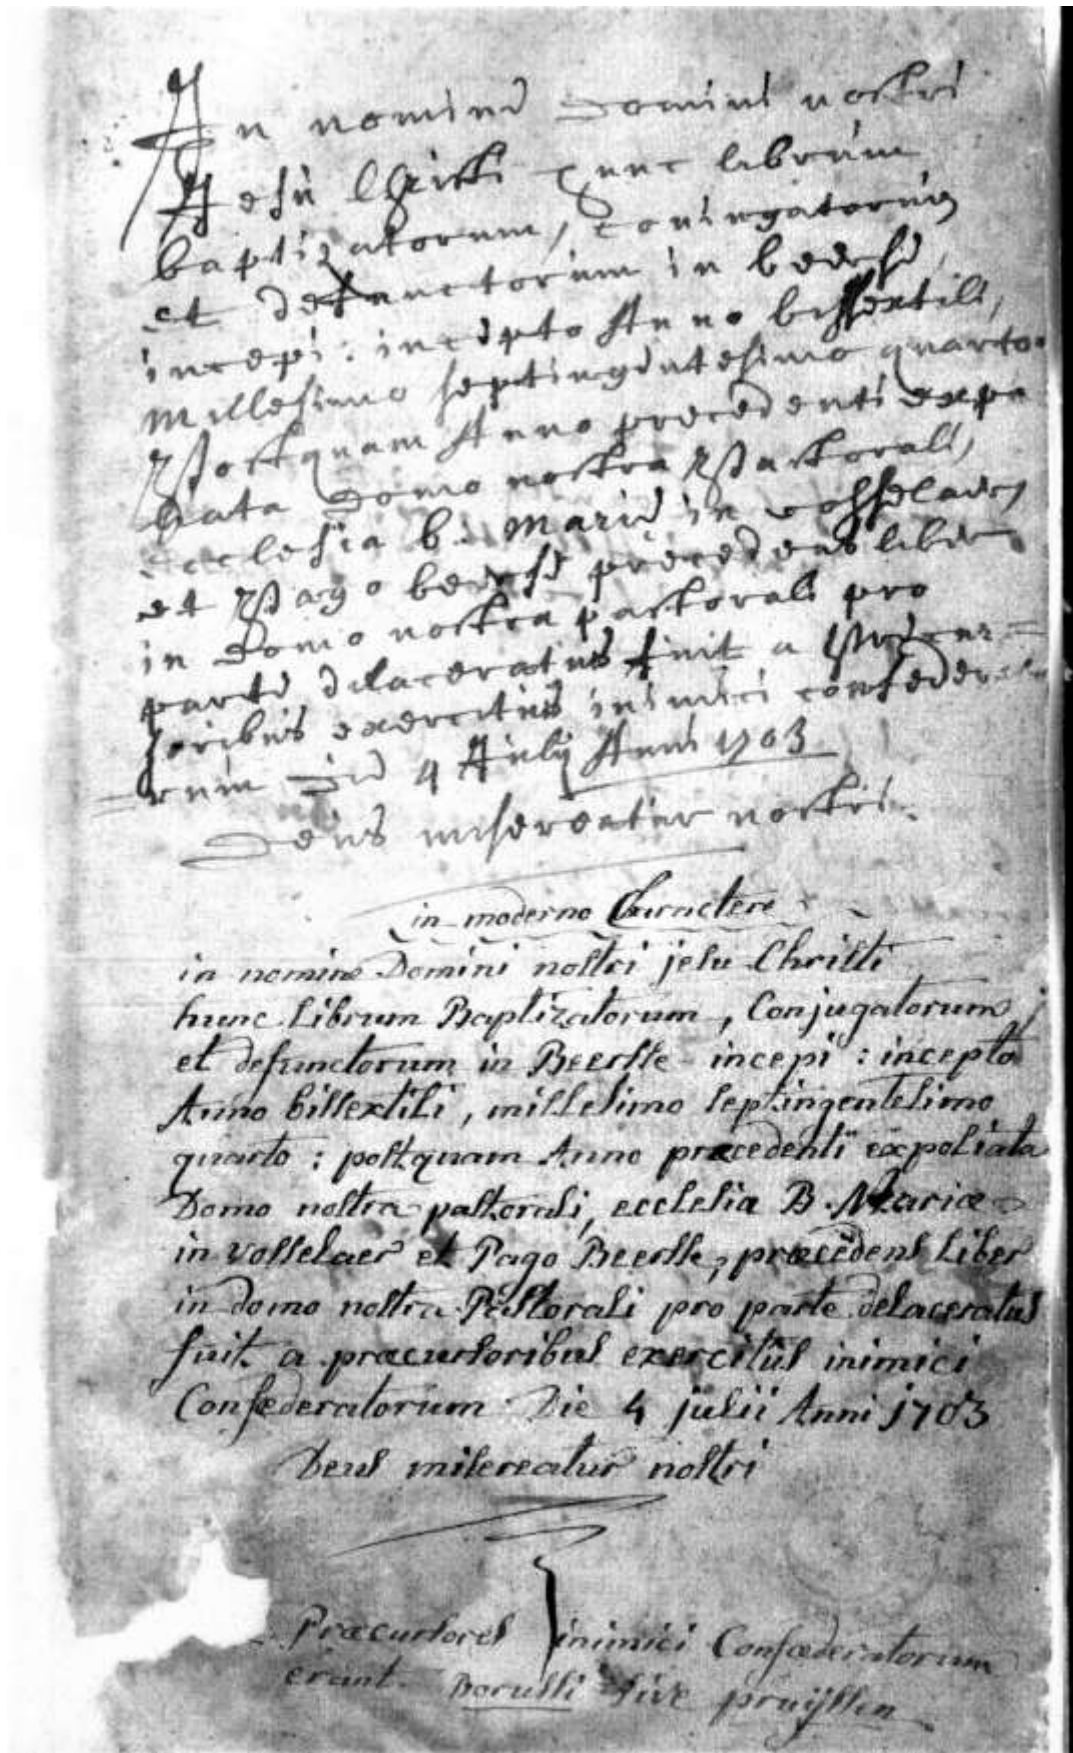 In nomine Domini nostri
Jesu Christi hunc librum
baptizatorum, Coniugatorum
et defunctorum in beerse
incepi: incepto Anno bissextili,
millesimo septingentesimo quarto
Postquam Anno precedenti expo
liata Domo nostra Pastorali,
ecclesia b. Marie in vosselaer
et Pago beerse precedens liber
in Domo nostra pastorali pro
parte delaceratus fuit a Precur=
soribus exercitus inimici confedera
rum die 4 July Anni 1703
Deus misereatur nostri.
in moderno Charactere
in nomine Domini nostri jesu Christi
hunc Librum Baptizatorum, Conjugatorum
et defunctorum in Beersse incepi : incepto
Anno bissextili, millesimo septingentesimo
quarto : postquam Anno præcedenti expoliata
Domo nostra pastorali, ecclesia B. Mariæ
in vosselaer et Pago Beersse, præcedens Liber
in domo nostra Pastorali pro parte delaceratus
fuit a præcursoribus exercitûs inimici
Confæderatorum Die 4 julii Anni 1703
Deus misereatur nostri
Præcursores inimici Confæderatorum
erant Borussi sive pruijssen